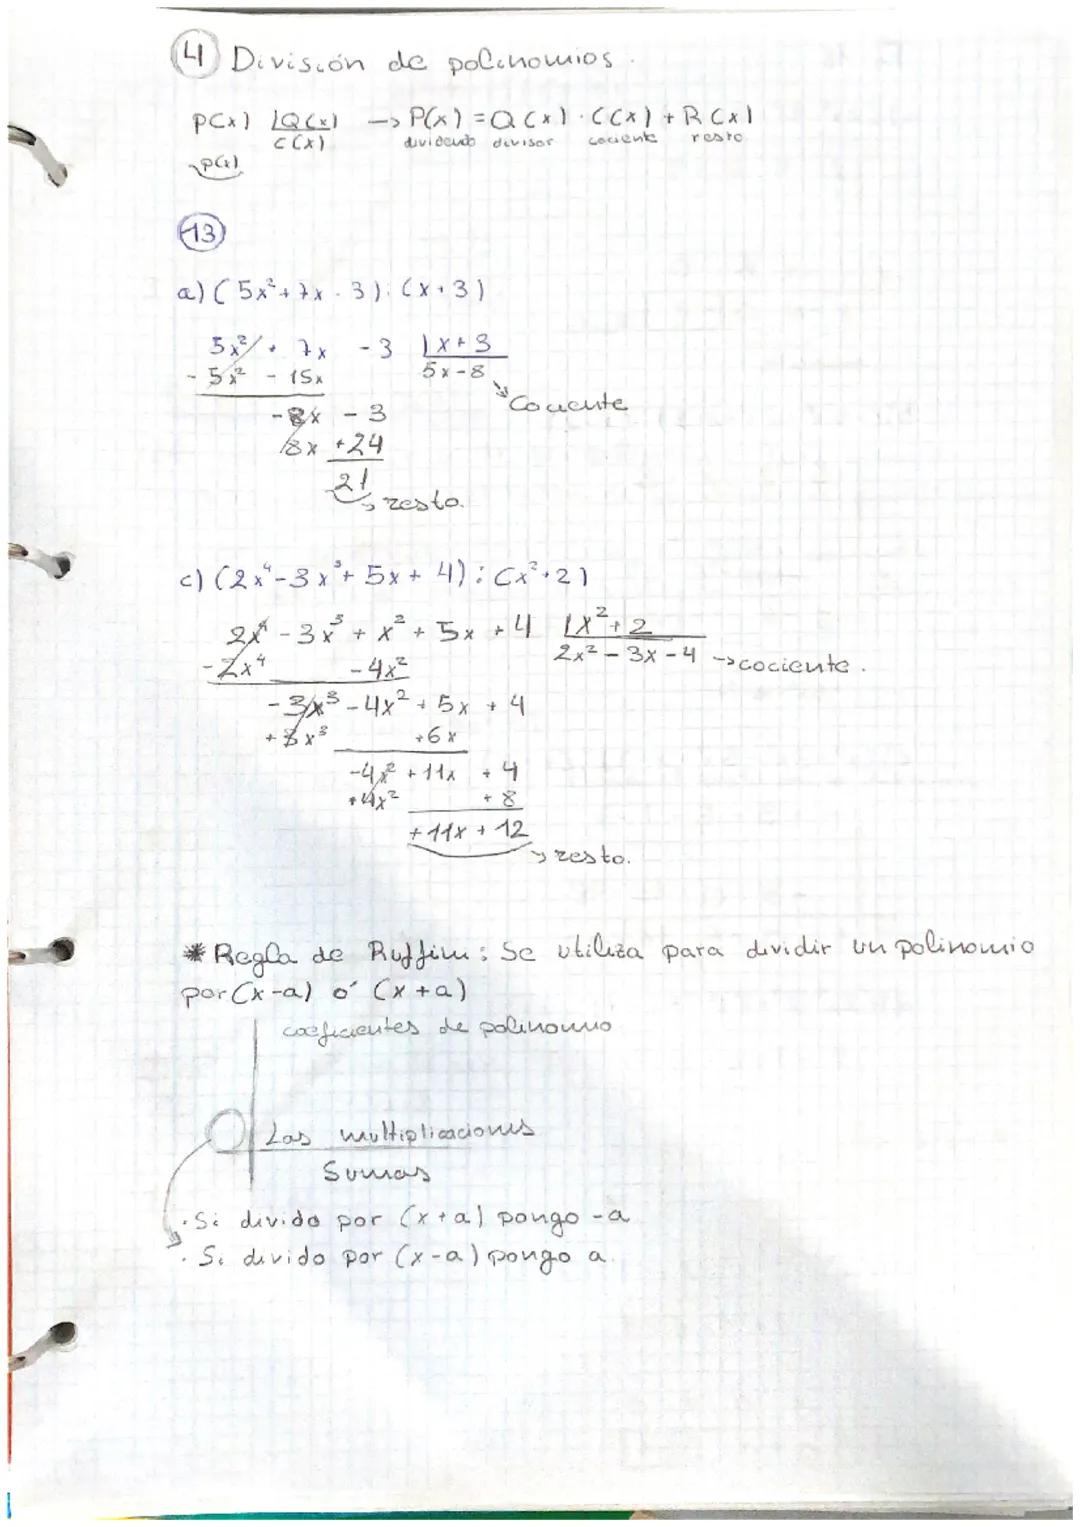 4 División de polinomios.
P(x) |Q(x) -> P(x) = Q(x) · C(x) + R(x)
C(x) dividendo divisor cociente resto
13
a) (5x² + 7x - 3) : (x + 3)
5x² + 7x - 3 |x + 3
- 5x² - 15x 5x - 8
Cociente
-8x - 3
8x + 24
21
resto.
c) (2x⁴ - 3x³ + 5x + 4) : (x² + 2)
2x⁴ - 3x³ + x² + 5x + 4 |x² + 2
-2x⁴ - 4x² 2x² - 3x - 4 -> cociente.
- 3x³ - 4x² + 5x + 4
+ 3x³ + 6x
-4x² + 11x + 4
+ 4x² + 8
+ 11x + 12
resto.
* Regla de Ruffini: Se utiliza para dividir un polinomio
por (x-a) ó (x+a)
coeficientes de polinomio
Las multiplicaciones
Sumas
· Si divido por (x+a) pongo -a
· Si divido por (x-a) pongo a.